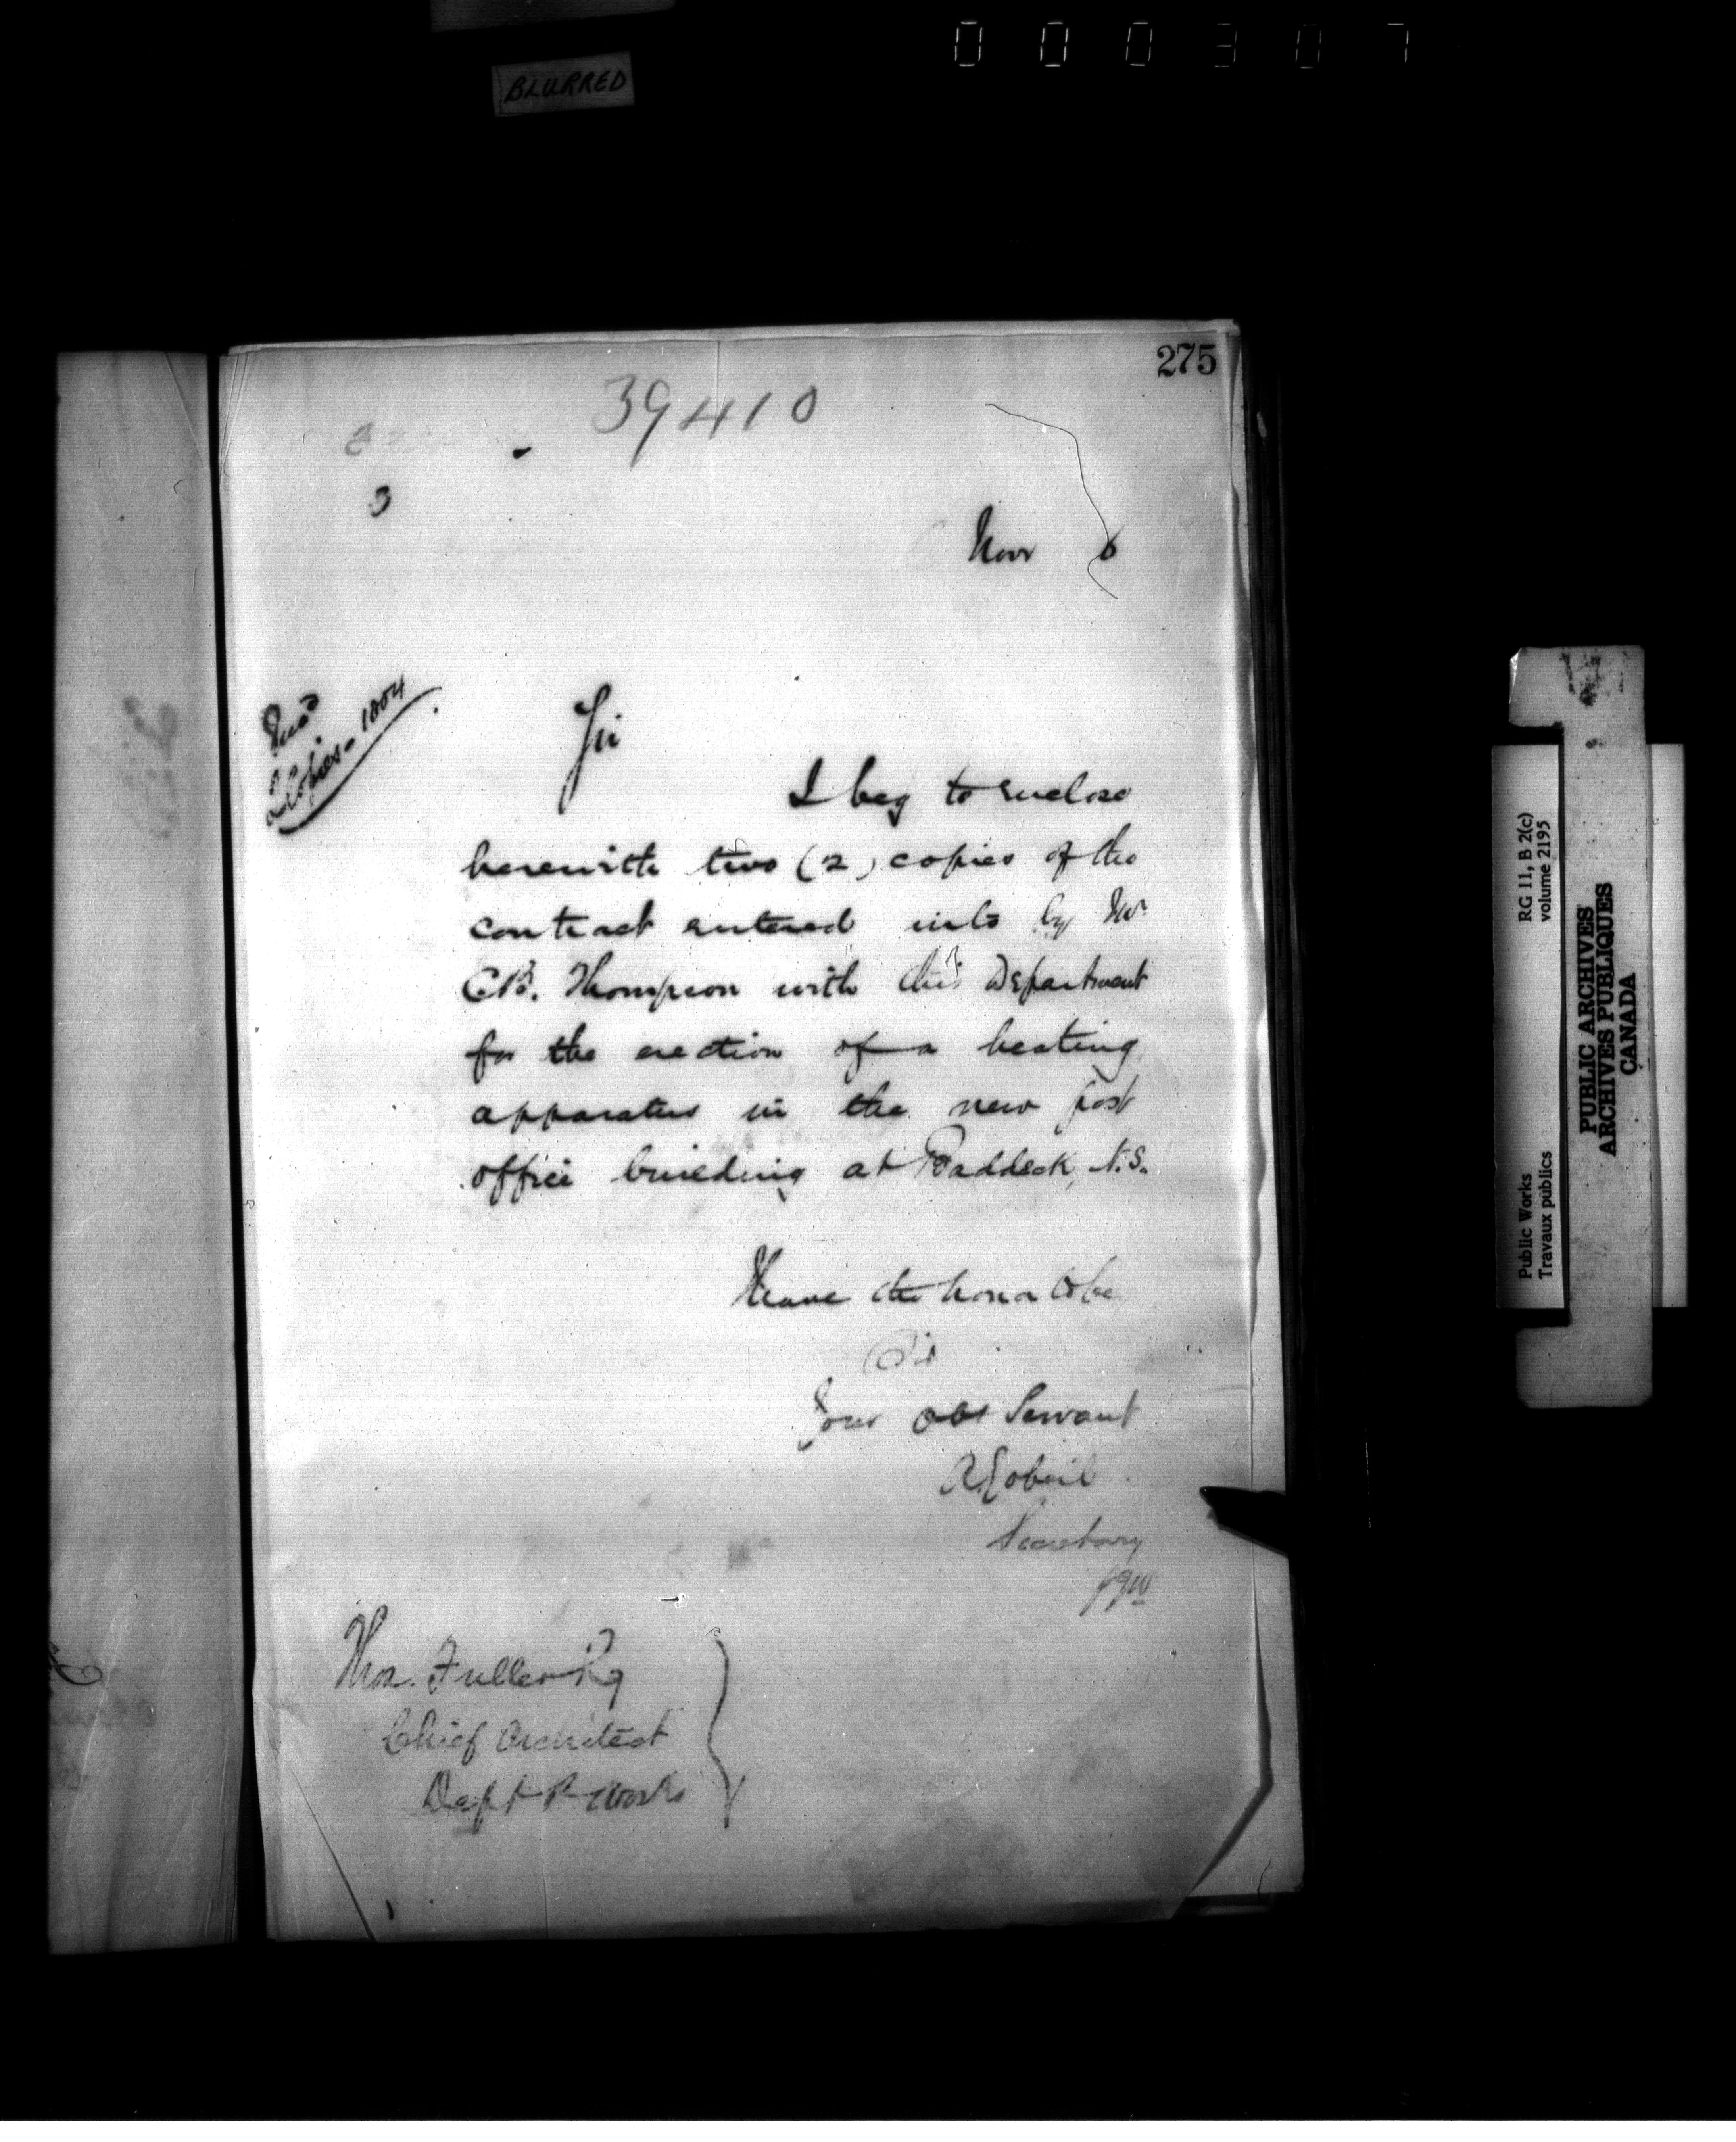 000307
BLURRED
275
39410
3
Novr 6
2 Copies - 1884
Sir
I beg to enclose
herewith two (2) copies of the
contract entered into by Mr
C.B. Thompson with this Department
for the erection of a heating
apparatus in the new post
office building at Baddeck, N.S.
I have the honor to be
Sir
Your Obt Servant
A. Gobeil
Secretary
Thos. Fuller Esq
Chief Architect
Dept P. Works
Public Works
Travaux publics
RG 11, B 2(c)
volume 2195
PUBLIC ARCHIVES
ARCHIVES PUBLIQUES
CANADA